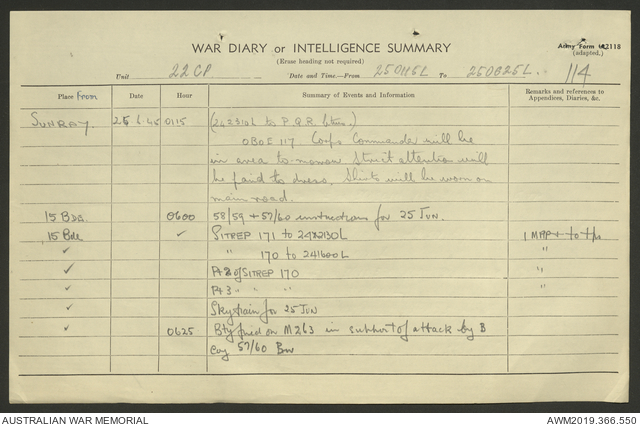 WAR DIARY or INTELLIGENCE SUMMARY
Army Form W3118
(Erase heading not required) (adapted.)
Unit 22 CP Date and Time—From 250115L To 250625L. 114
Place From Date Hour Summary of Events and Information Remarks and references to Appendices, Diaries, &c.
SUNRAY 25.6.45 0115 (242310L to P.Q.R. btys.)
OBOE 117 Corps Commander will be
in area to-morrow Strict attention will
be paid to dress. Shirts will be worn on
main road.
15 BDE. 0600 58/59 + 57/60 instructions for 25 JUN.
15 Bde ✓ SITREP 171 to 242130L 1 MPP + to t/s
✓ " 170 to 241600L "
✓ Pt 2 of SITREP 170 "
✓ Pt 3 " " " "
✓ Skytrain for 25 JUN
✓ 0625 Bty fired on M263 in support of attack by B
Coy 57/60 Bn
AUSTRALIAN WAR MEMORIAL AWM2019.366.550